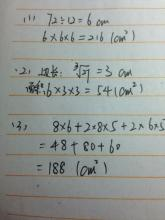 (1) 72÷12=6 cm
6×6×6=216 (cm³)
(2) 棱长: ³√27=3 cm
面积: 6×3×3=54 (cm²)
(3) 8×6+2×8×5+2×6×5
=48+80+60
=188 (cm²)